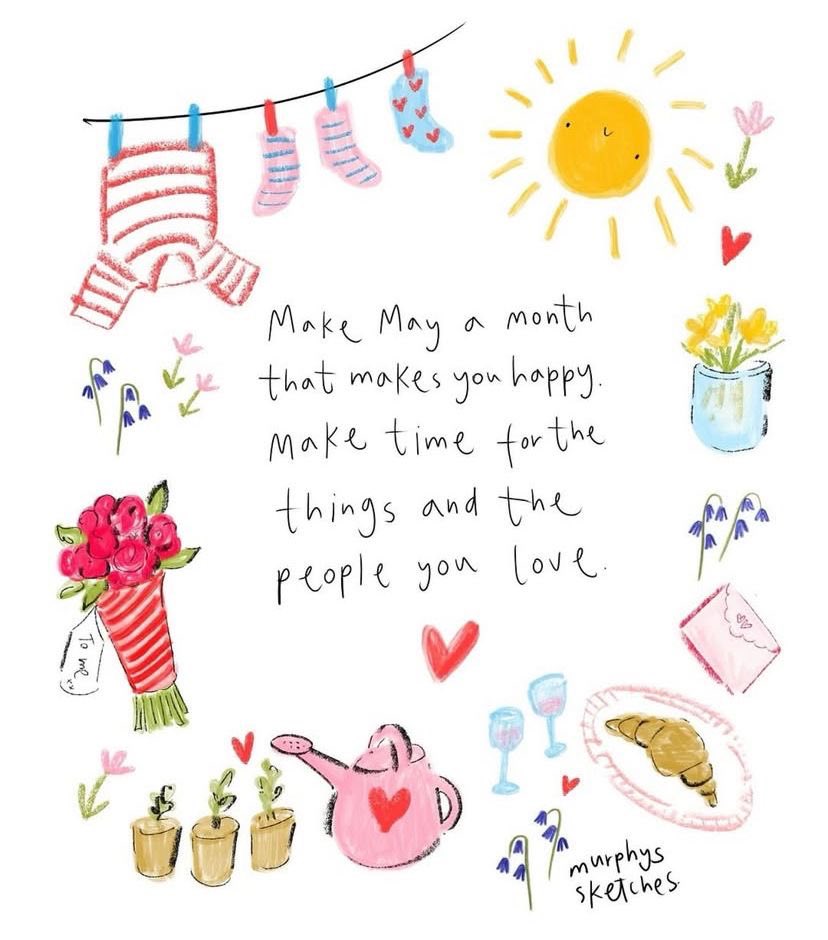 Make May a month
that makes you happy.
Make time for the
things and the
people you love.
To me
xx
murphys
sketches.